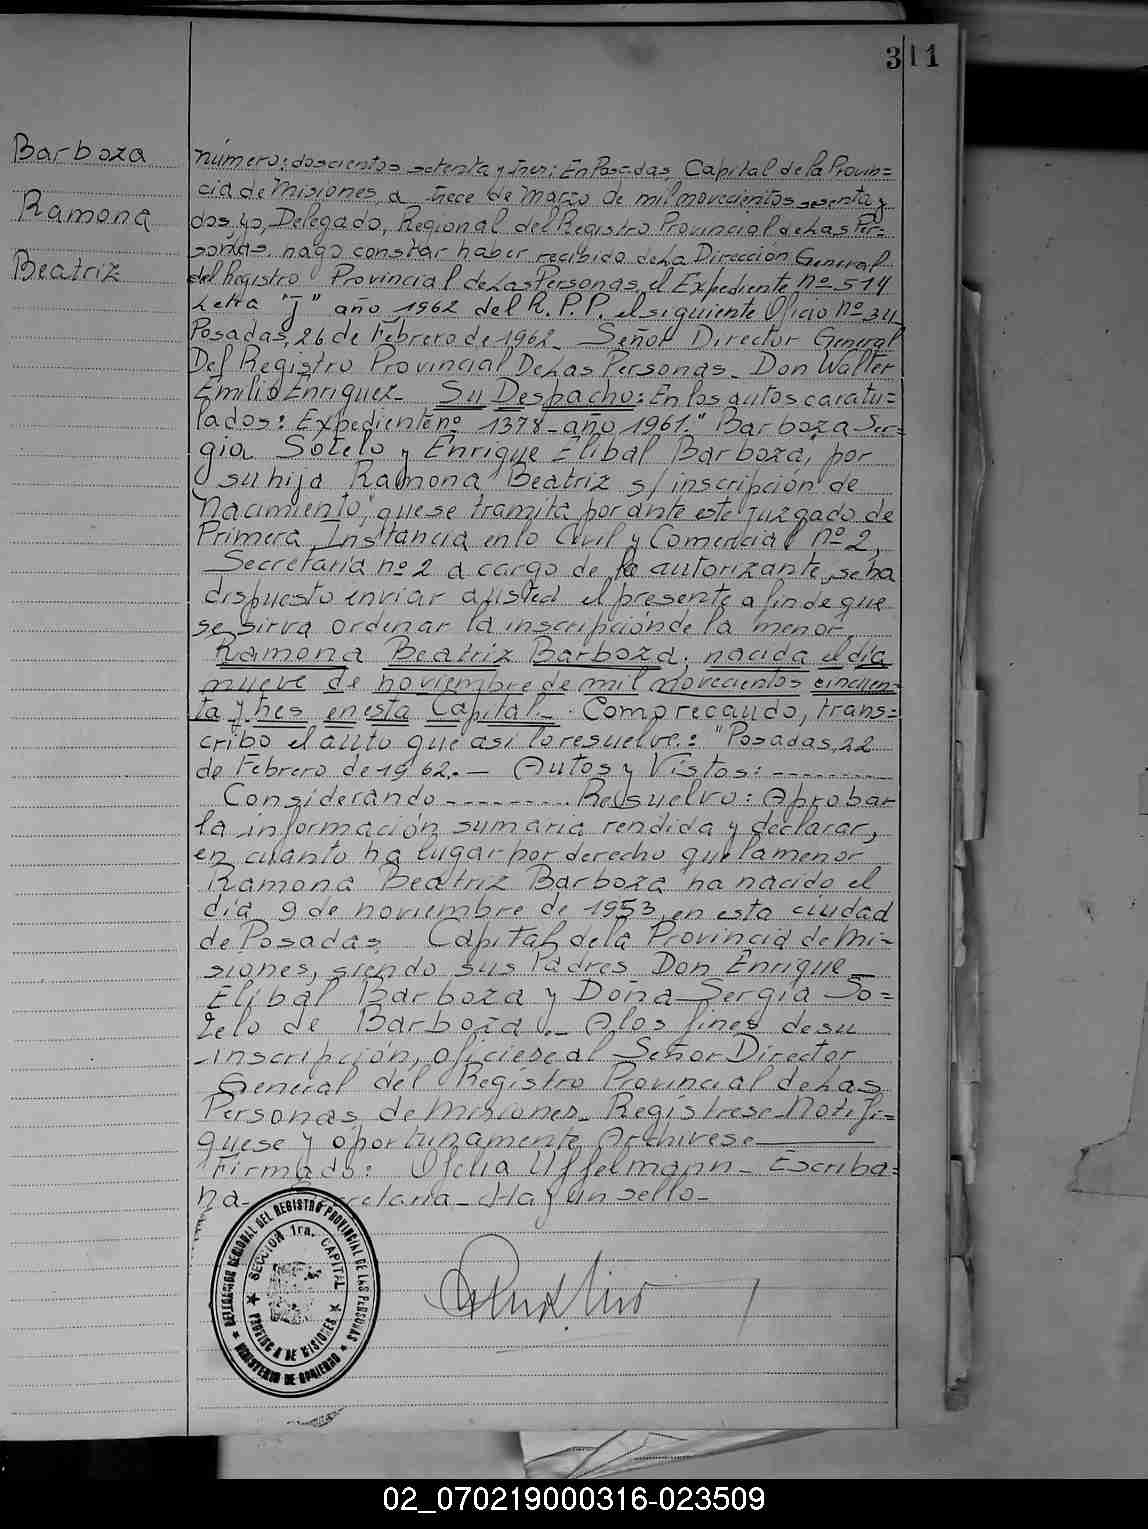 311
Barboza
Ramona
Beatriz
número: doscientos setenta y tres: En Posadas, Capital de la Provin=
cia de Misiones, a trece de Marzo de mil novecientos sesenta y
dos, yo, Delegado, Regional del Registro Provincial de Las Per=
sonas. hago constar haber recibido de La Dirección General
del Registro Provincial de Las Personas, el Expediente nº 514
Letra "J" año 1962 del R.P.P. el siguiente Oficio nº 34
Posadas, 26 de Febrero de 1962_ Señor Director General
Del Registro Provincial De Las Personas_ Don Walter
Emilio Enriquez_ Su Despacho: En los autos caratu=
lados: Expediente nº 1378_año 1961." Barboza Ser=
gia Sotelo y Enrique Elibal Barboza, por
su hija Ramona Beatriz s/ inscripción de
Nacimiento", que se tramita por ante este Juzgado de
Primera Instancia en lo Civil y Comercial nº 2,
Secretaría nº 2 a cargo de la autorizante, se ha
dispuesto enviar a usted el presente a fin de que
se sirva ordenar la inscripción de la menor
Ramona Beatriz Barboza, nacida el día
nueve de noviembre de mil novecientos cincuen=
ta y tres en esta Capital_. Como recaudo, trans=
cribo el auto que así lo resuelve.: "Posadas, 22
de Febrero de 1962._ Autos y Vistos: ---------
Considerando --------- Resuelvo: Aprobar
la información sumaria rendida y declarar,
en cuanto ha lugar por derecho que la menor
Ramona Beatriz Barboza ha nacido el
día 9 de noviembre de 1953, en esta ciudad
de Posadas Capital de la Provincia de Mi-
siones, siendo sus Padres Don Enrique
Elibal Barboza y Doña Sergia So=
telo de Barboza._ A los fines de su
inscripción, oficiese al Señor Director
General del Registro Provincial de Las
Personas de Misiones_ Registrese_Notifi=
quese y oportunamente Archivese
Firmado: Ofelia Uffelmann_ Escriba=
na_ Secretaria_ Hay un sello_
DELEGACION REGIONAL DEL REGISTRO PROVINCIAL DE LAS PERSONAS
SECCION 1ra. CAPITAL
PROVINCIA DE MISIONES
MINISTERIO DE GOBIERNO
02_070219000316-023509